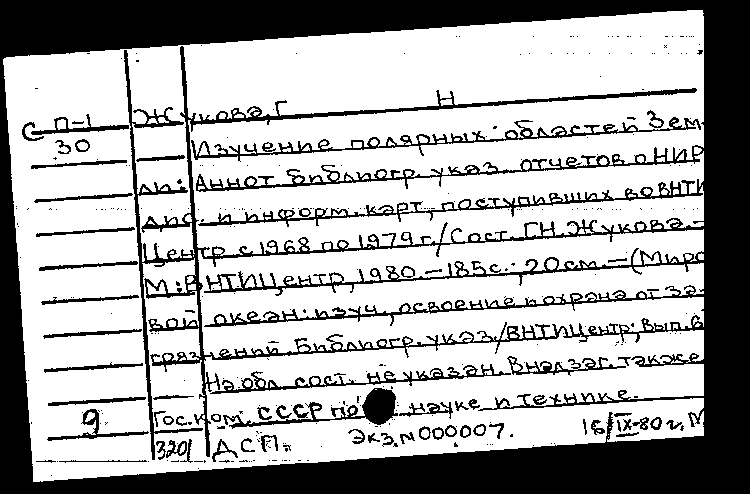 С П-1 Жукова, Г Н
30 Изучение полярных областей Зем-
ли: Аннот библиогр. указ. отчетов о НИР
дис. и информ. карт, поступивших во ВНТИ
Центр с 1968 по 1979 г./Сост. Г.Н. Жукова.-
М.: ВНТИЦентр, 1980.-185с.; 20см.-(Миро
вой океан: изуч., освоение и охрана от за-
грязнений. Библиогр. указ./ВНТИЦентр; Вып. 6
На обл. сост. не указан. В надзаг. также
9 Гос. ком. СССР по науке и технике.
3201 ДСП. Экз. N000007. 16/IX-80 г. М